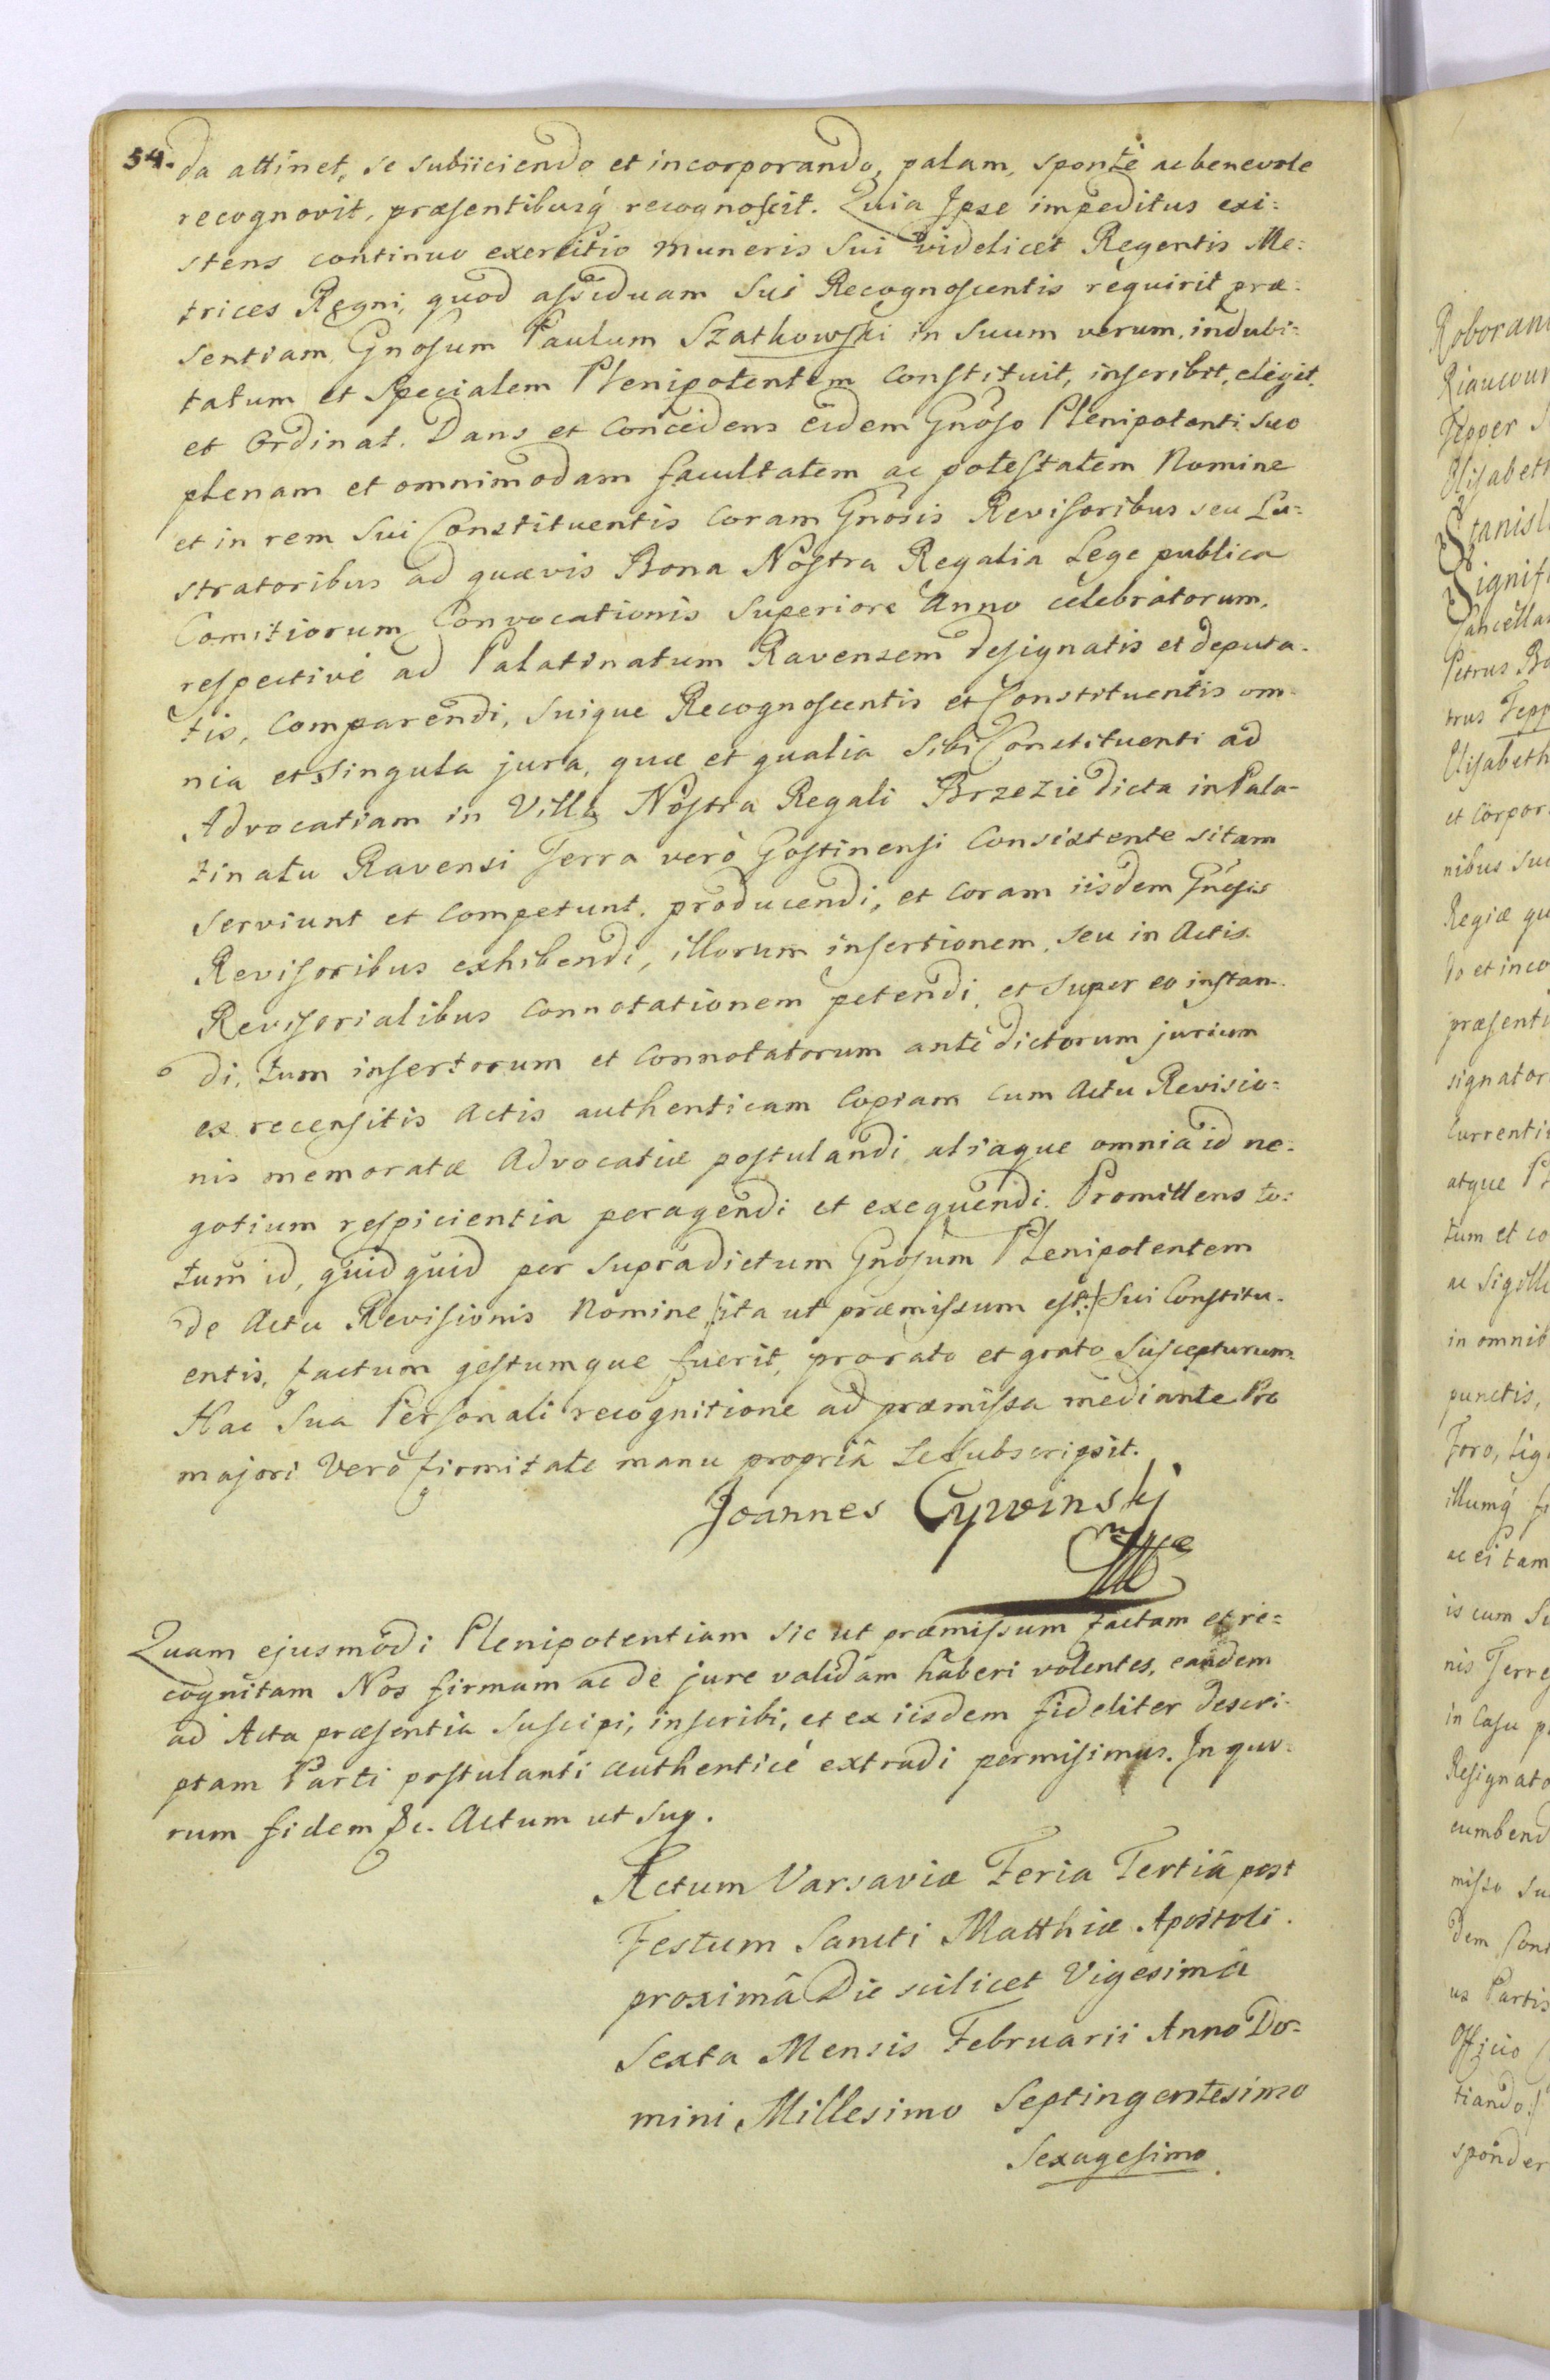 54. da attinet, se subiiciendo et incorporando, palam, spontè ac benevole
recognovit, præsentibusq́ recognoscit. Quia Ipse impeditus exi:
stens continuo exercitio muneris Sui videlicet Regentis Me:
trices Regni, quod assiduam Sui Recognoscentis requirit præ:
sentiam, Gnosum Paulum Szatkowski in Suum verum, indubi:
tatum et Specialem Plenipotentem Constituit, inscribit, elegit,
et Ordinat. Dans et Concedens eidem Gnoso Plenipotenti Suo
plenam et omnimodam facultatem ac potestatem Nomine
et in rem Sui Constituentis Coram Gnosis Revisoribus seu Lu:
stratoribus ad quævis Bona Nostra Regalia Lege publica
Comitiorum Convocationis Superiore Anno celebratorum,
respectivè ad Palatinatum Ravensem designatis et deputa:
tis, Comparendi, Suique Recognoscentis et Constituentis om:
nia et Singula jura, quæ et qualia Sibi Constituenti ad
Advocatiam in Villa Nostra Regali Brzezie dicta in Pala-
tinatu Ravensi Terra verò Gostinensi Consistente sitam
Serviunt et Competunt, producendi, et Coram iisdem Gnosis
Revisoribus exhibendi, illorum insertionem, seu in Actis
Revisorialibus Connotationem petendi, et Super eo instan-
di, tum insertorum et Connotatorum antèdictorum jurium
ex recensitis Actis authenticam Copiam Cum Actu Revisio:
nis memoratæ Advocatiæ postulandi, aliaque omnia id ne:
gotium respicientia peragendi et exequendi. Promittens to:
tum id, quidquid per Supradictum Gnosum Plenipotentem
de Actu Revisionis Nomine /:ita ut præmissum est:/ Sui Constitu-
entis, factum gestumque fuerit, pro rato et grato Suscepturum
Hac Sua Personali recognitione ad præmissa mediante Pro
majori verò firmitate manu propriâ Se Subscripsit.
Joannes Cywinskj
Quam ejusmodi Plenipotentiam Sic ut præmissum factam et re=
cognitam Nos firmam ac de jure validam haberi volentes, eandem
ad Acta præsentia Suscipi, inscribi, et ex iisdem fideliter descri-
ptam Parti postulanti authenticè extradi permisimus. In quo:
rum fidem &c. Actum ut Sup.
Actum Varsaviæ Feria Tertiâ post
Festum Sancti Matthiæ Apostoli
proximâ Die scilicet Vigesimâ
Sexta Mensis Februarii Anno Do=
mini Millesimo Septingentesimo
Sexagesimo
Roboran
Riaucour
Tepper
Elisabeth
Stanisl
Signif
Cancella
Petrus
trus Tepp
Elisabeth
et Corpor
nibus
Regiæ qu
do et inco
præsenti
signator
Currenti
atque
tum et co
ac Sigill
in omnib
punctis,
Foro,
illumq́
ac ei tam
is cum
nis Terre
in Casu
Resignato
cumbend
misso
dem Cons
us Partis
Officio
tiando:/
sponder